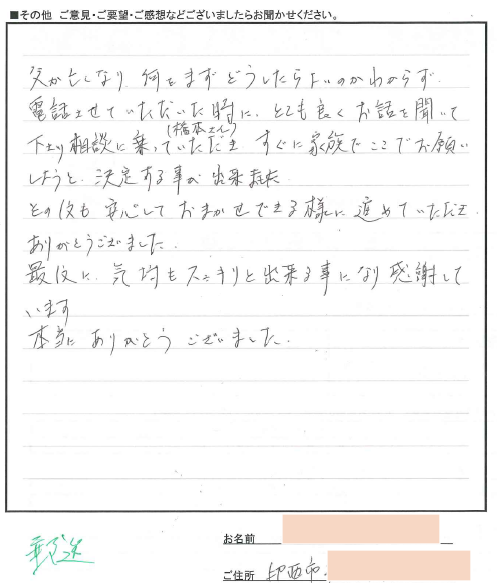 ■その他　ご意見・ご要望・ご感想などございましたらお聞かせください。
父が亡くなり、何をまずどうしたらよいのかわからず、
電話させていただいた時に、とても良くお話を聞いて
(橋本さん)
下さり相談に乗っていただき すぐに家族でここでお願い
しようと、決定する事が出来ました
その後も安心しておまかせできる様に進めていただき、
ありがとうございました。
最後に、気持もスッキリと出来る事になり感謝して
います
本当に ありがとう ございました。
郵送
お名前
ご住所 印西市